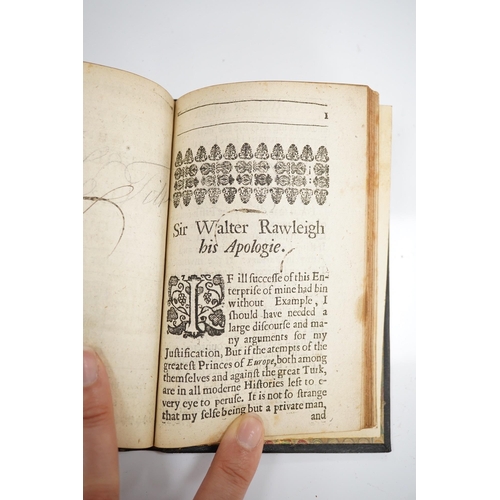 1
Sir Walter Rawleigh
his Apologie.
IF ill successe of this En-
terprise of mine had bin
without Example, I
should have needed a
large discourse and ma-
ny arguments for my
Justification, But if the atempts of the
greatest Princes of Europe, both among
themselves and against the great Turk,
are in all moderne Histories left to e-
very eye to peruse. It is not so strange
that my selfe being but a private man,
and